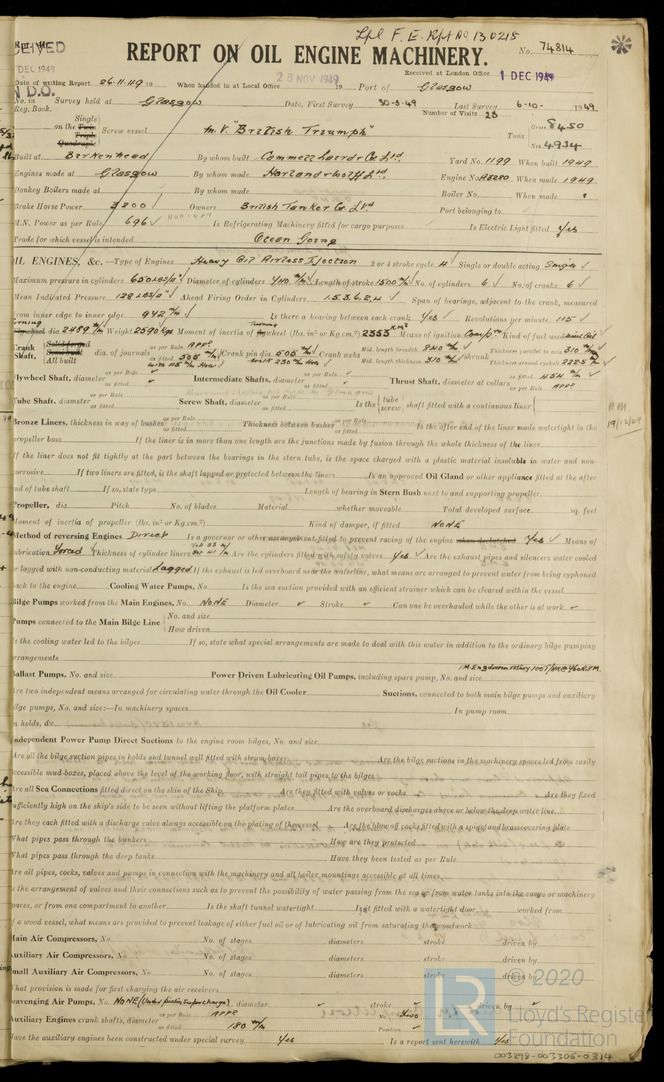 Lpl F. E. Rpt No. 130215
RECEIVED
DEC 1949
REPORT ON OIL ENGINE MACHINERY.
No. 74814
28 NOV 1949
Received at London Office 1 DEC 1949
Date of writing Report 26.11.49 19 When handed in at Local Office 19 Port of Glasgow
No. in Survey held at Glasgow Date, First Survey 30-3-49 Last Survey 6-10- 1949
Reg. Book. Number of Visits 25
on the Single Twin Triple Quadruple Screw vessel M.V. "British Triumph" Tons Gross 8450 Net 4934
Built at Birkenhead By whom built Cammell Laird & Co. Ltd Yard No. 1199 When built 1949
Engines made at Glasgow By whom made Harland & Wolff Ltd Engine No. When made 1949
Donkey Boilers made at By whom made Boiler No. When made
Brake Horse Power 3200 Owners British Tanker Co. Ltd Port belonging to
M.N. Power as per Rule 696 Is Refrigerating Machinery fitted for cargo purposes Is Electric Light fitted Yes
Trade for which vessel is intended Ocean Going
OIL ENGINES, &c.—Type of Engines Heavy Oil Airless Injection 2 or 4 stroke cycle 4 Single or double acting Single
Maximum pressure in cylinders 650 Lbs/□" Diameter of cylinders 740 m/m Length of stroke 1500 m/m No. of cylinders 6 No. of cranks 6
Mean Indicated Pressure 128 Lbs/□" Ahead Firing Order in Cylinders 1.5.3.6.2.4 Span of bearings, adjacent to the crank, measured
from inner edge to inner edge 942 m/m Is there a bearing between each crank Yes Revolutions per minute 115
Turning wheel dia 2489 m/m Weight 2590 kgs Moment of inertia of Turning wheel (lbs. in² or Kg.cm.²) 2353 KM² Means of ignition Comp'n Kind of fuel used
Crank Shaft, Solid forged Semi built All built dia. of journals as per Rule APPd as fitted 505 m/m Crank pin dia. 505 m/m Crank webs Mid. length breadth 940 m/m Mid. length thickness 310 m/m shrunk Thickness parallel to axis 310 m/m Thickness around eyehole 222.5 m/m
with 115 m/m Hole With 230 m/m Hole
Flywheel Shaft, diameter as per Rule as fitted Intermediate Shafts, diameter as per Rule as fitted Thrust Shaft, diameter at collars as fitted 454 m/m as per Rule APPd
Tube Shaft, diameter as per Rule as fitted Screw Shaft, diameter as per Rule as fitted Is the tube screw shaft fitted with a continuous liner
Bronze Liners, thickness in way of bushes as per Rule as fitted Thickness between bushes as per rule as fitted Is the after end of the liner made watertight in the
propeller boss If the liner is in more than one length are the junctions made by fusion through the whole thickness of the liner
If the liner does not fit tightly at the part between the bearings in the stern tube, is the space charged with a plastic material insoluble in water and non-
corrosive If two liners are fitted, is the shaft lapped or protected between the liners Is an approved Oil Gland or other appliance fitted at the after
end of tube shaft If so, state type Length of bearing in Stern Bush next to and supporting propeller
Propeller, dia. Pitch No. of blades Material whether moveable Total developed surface sq. feet
Moment of inertia of propeller (lbs. in² or Kg.cm.²) Kind of damper, if fitted NONE
Method of reversing Engines Direct Is a governor or other arrangement fitted to prevent racing of the engine when declutched Yes Means of
lubrication Forced Thickness of cylinder liners Are the cylinders fitted with safety valves Yes Are the exhaust pipes and silencers water cooled
or lagged with non-conducting material Lagged If the exhaust is led overboard near the waterline, what means are arranged to prevent water from being syphoned
back to the engine Cooling Water Pumps, No. Is the sea suction provided with an efficient strainer which can be cleared within the vessel
Bilge Pumps worked from the Main Engines, No. NONE Diameter Stroke Can one be overhauled while the other is at work
Pumps connected to the Main Bilge Line No. and size How driven
Is the cooling water led to the bilges If so, state what special arrangements are made to deal with this water in addition to the ordinary bilge pumping
arrangements
Ballast Pumps, No. and size Power Driven Lubricating Oil Pumps, including spare pump, No. and size
Are two independent means arranged for circulating water through the Oil Cooler Suctions, connected to both main bilge pumps and auxiliary
bilge pumps, No. and size:—In machinery spaces In pump room
In holds, &c.
Independent Power Pump Direct Suctions to the engine room bilges, No. and size
Are all the bilge suction pipes in holds and tunnel well fitted with strum boxes Are the bilge suctions in the machinery spaces led from easily
accessible mud-boxes, placed above the level of the working floor, with straight tail pipes to the bilges
Are all Sea Connections fitted direct on the skin of the Ship Are they fitted with valves or cocks Are they fixed
sufficiently high on the ship's side to be seen without lifting the platform plates Are the overboard discharges above or below the deep water line
Are they each fitted with a discharge valve always accessible on the plating of the vessel Are the blow off cocks fitted with a spigot and brass covering plate
What pipes pass through the bunkers How are they protected
What pipes pass through the deep tanks Have they been tested as per Rule
Are all pipes, cocks, valves and pumps in connection with the machinery and all boiler mountings accessible at all times
Is the arrangement of valves and their connections such as to prevent the possibility of water passing from the sea or from water tanks into the cargo or machinery
spaces, or from one compartment to another Is the shaft tunnel watertight Is it fitted with a watertight door worked from
If a wood vessel, what means are provided to prevent leakage of either fuel oil or of lubricating oil from saturating the woodwork
Main Air Compressors, No. No. of stages diameters stroke driven by
Auxiliary Air Compressors, No. No. of stages diameters stroke driven by
Small Auxiliary Air Compressors, No. No. of stages diameters stroke driven by
What provision is made for first charging the air receivers
Scavenging Air Pumps, No. NONE (Under piston Supercharge) diameter stroke driven by
Auxiliary Engines crank shafts, diameter as per Rule APPd as fitted 180 m/m No. Position
Have the auxiliary engines been constructed under special survey Yes Is a report sent herewith Yes
LR © 2020
Lloyd's Register
Foundation
003298-003306-0314